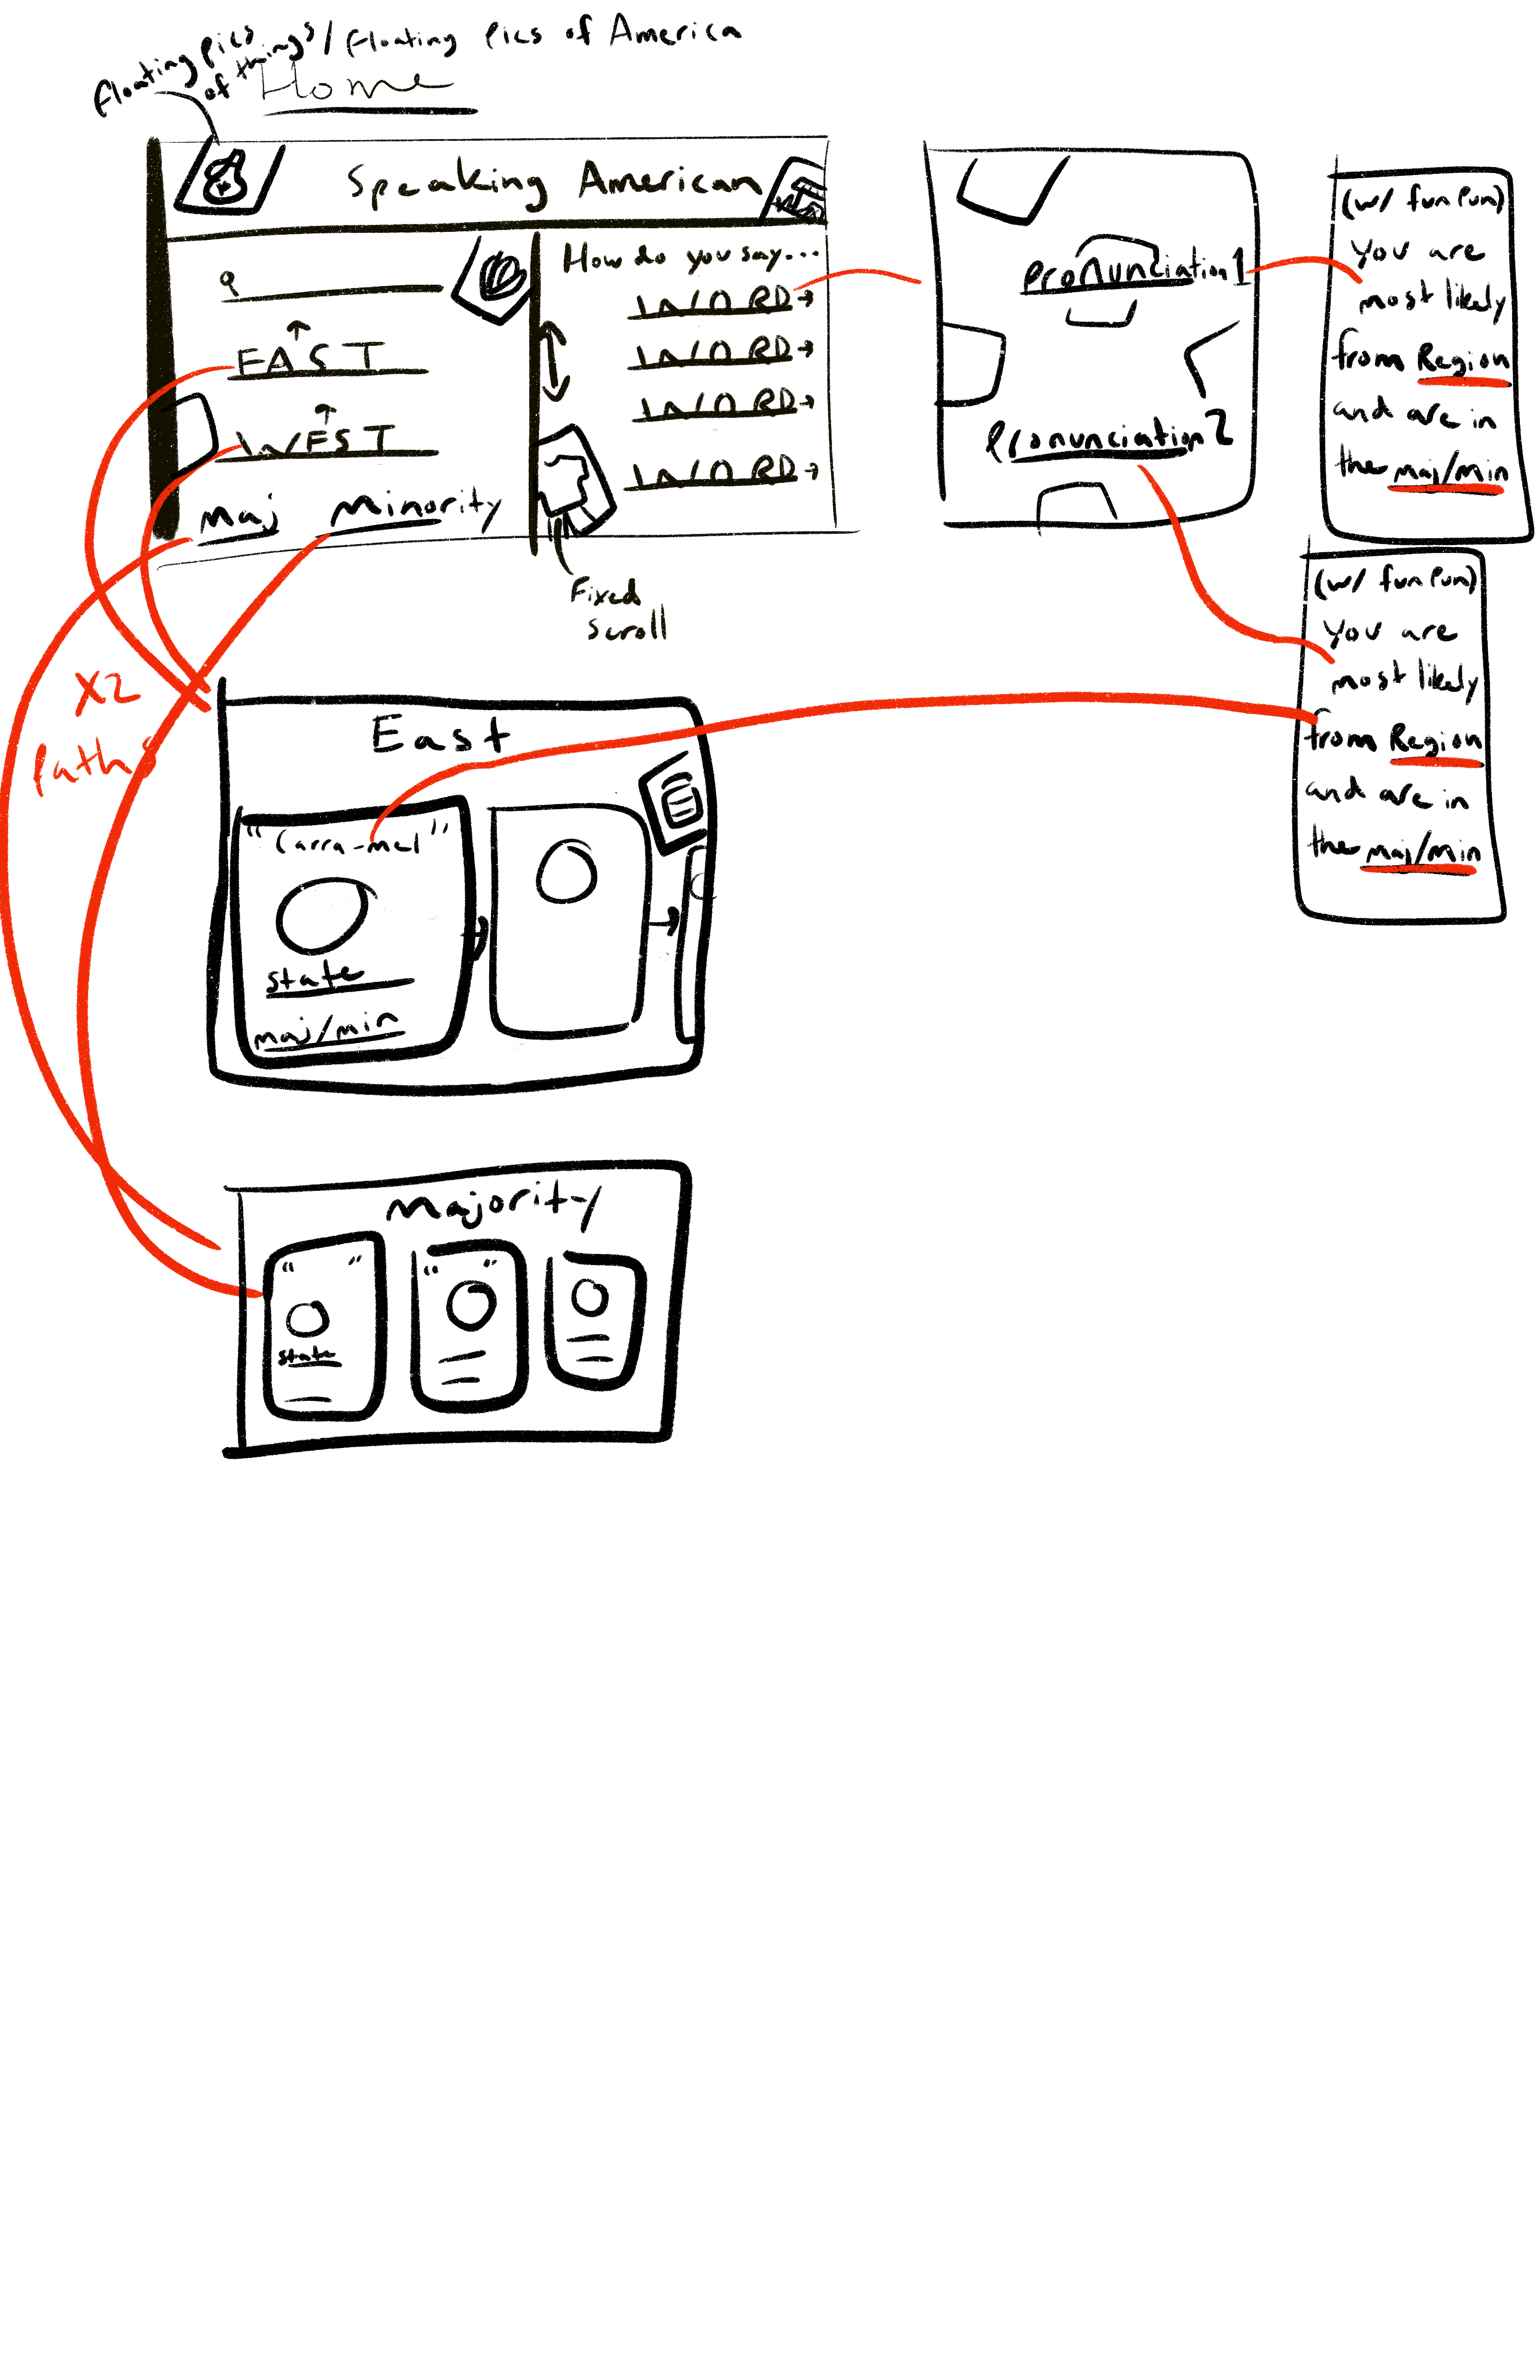 Floating pics of things / Floating Pics of America
Home
Speaking American
How do you say...
WORD →
WORD →
WORD →
WORD →
EAST
WEST
Maj Minority
Fixed
scroll
Pronunciation 1
Pronunciation 2
(w/ fun Pun)
You are
most likely
from Region
and are in
the maj/min
(w/ fun Pun)
You are
most likely
from Region
and are in
the maj/min
X2
Paths
East
"Carra-mel"
state
maj/min
Majority
" "
state
" "